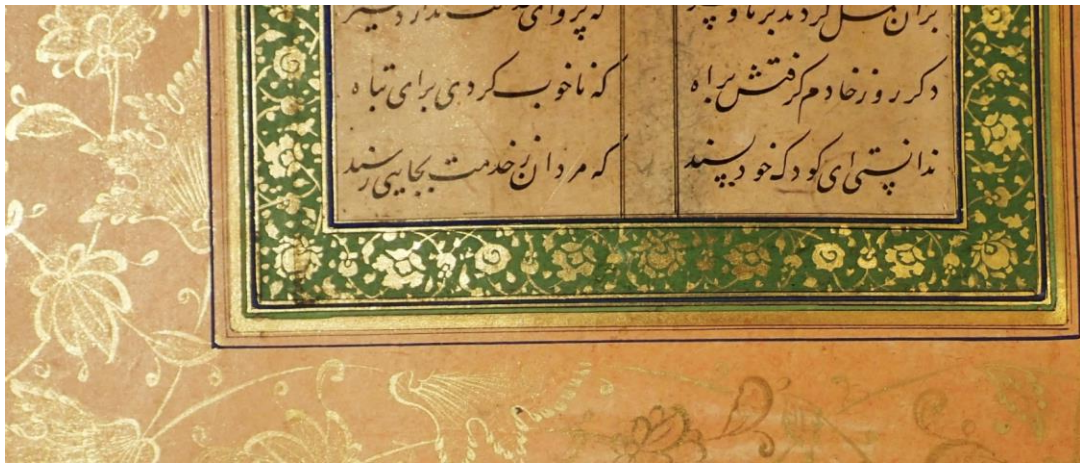 بران حمل کردند برنا و پیر که پروای خدمت ندارد فقیر
دکر روز خادم کرفتش براه که ناخوب کردی برای تباه
ندانستی ای کودک خودپسند که مردان ز خدمت بجایی رسند